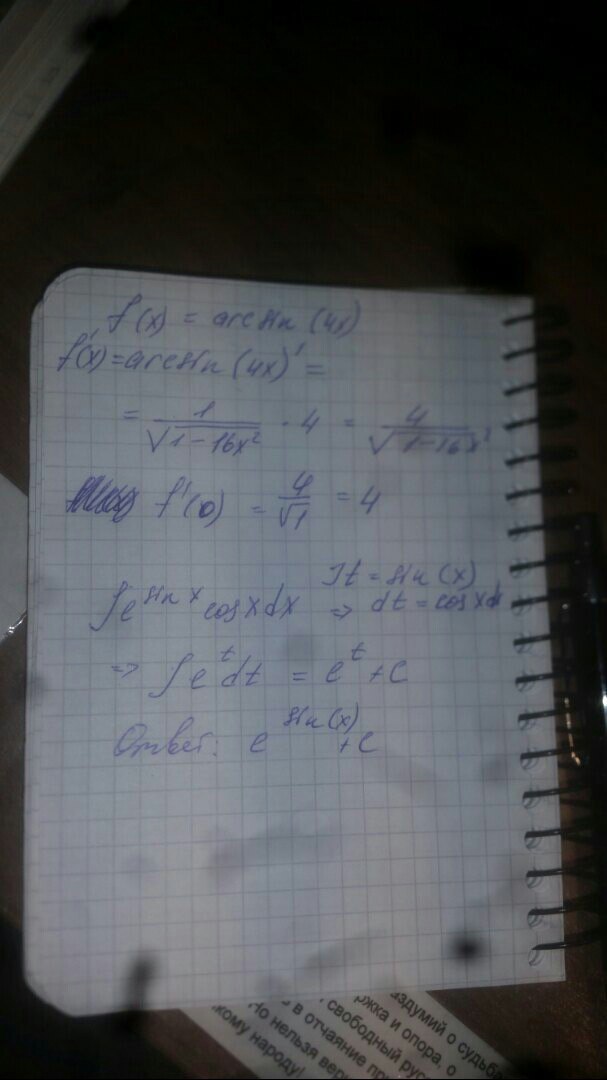 f(x) = arcsin (4x)
f'(x) = arcsin (4x)' =
= 1/√(1-16x²) · 4 = 4/√(1-16x²)
f'(0) = 4/√1 = 4
∫e^(sin x) cosxdx ⇒ t = sin(x) dt = cosxdx
⇒ ∫e^t dt = e^t + C
Ответ: e^(sin(x)) + C
раздумий о судьба
ржка и опора, о
свободный рус
в отчаяние при
Но нельзя вери
кому народу!